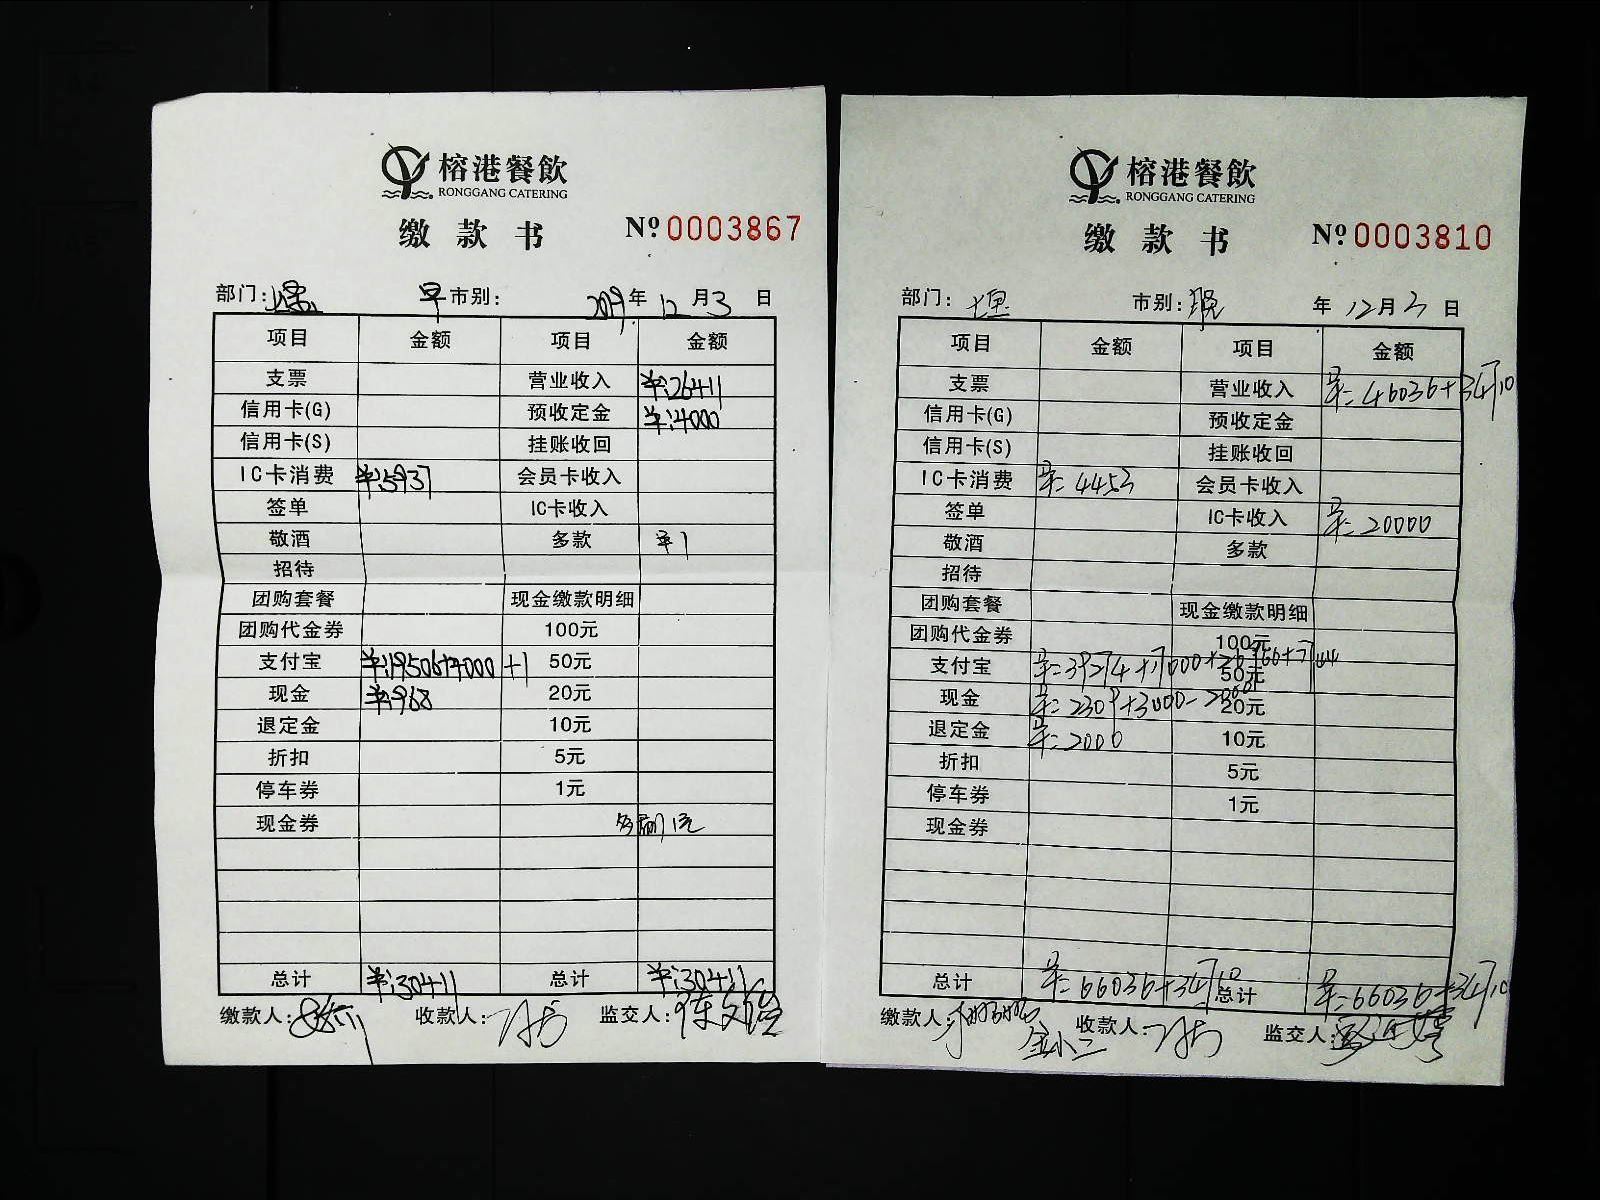 榕港餐飲
RONGGANG CATERING
缴款书 № 0003867
部门: 早市别: 2019年12月3日
项目 金额 项目 金额
支票 营业收入 ¥:26411
信用卡(G) 预收定金 ¥:4000
信用卡(S) 挂账收回
IC卡消费 ¥:5937 会员卡收入
签单 IC卡收入
敬酒 多款 ¥1
招待
团购套餐 现金缴款明细
团购代金券 100元
支付宝 ¥:19506+4000+1 50元
现金 ¥:968 20元
退定金 10元
折扣 5元
停车券 1元
现金券 多刷1元
总计 ¥:30411 总计 ¥:30411
缴款人: 收款人: 监交人:
榕港餐飲
RONGGANG CATERING
缴款书 № 0003810
部门: 市别:晚 年12月3日
项目 金额 项目 金额
支票 营业收入 ¥:46036+34710
信用卡(G) 预收定金
信用卡(S) 挂账收回
IC卡消费 ¥:4453 会员卡收入
签单 IC卡收入 ¥:20000
敬酒 多款
招待
团购套餐 现金缴款明细
团购代金券 100元
支付宝 50元
现金 ¥:2309+3000-2000 20元
退定金 ¥:2000 10元
折扣 5元
停车券 1元
现金券
总计 ¥:66036+34710 总计 ¥:66036+34710
缴款人: 收款人: 监交人: